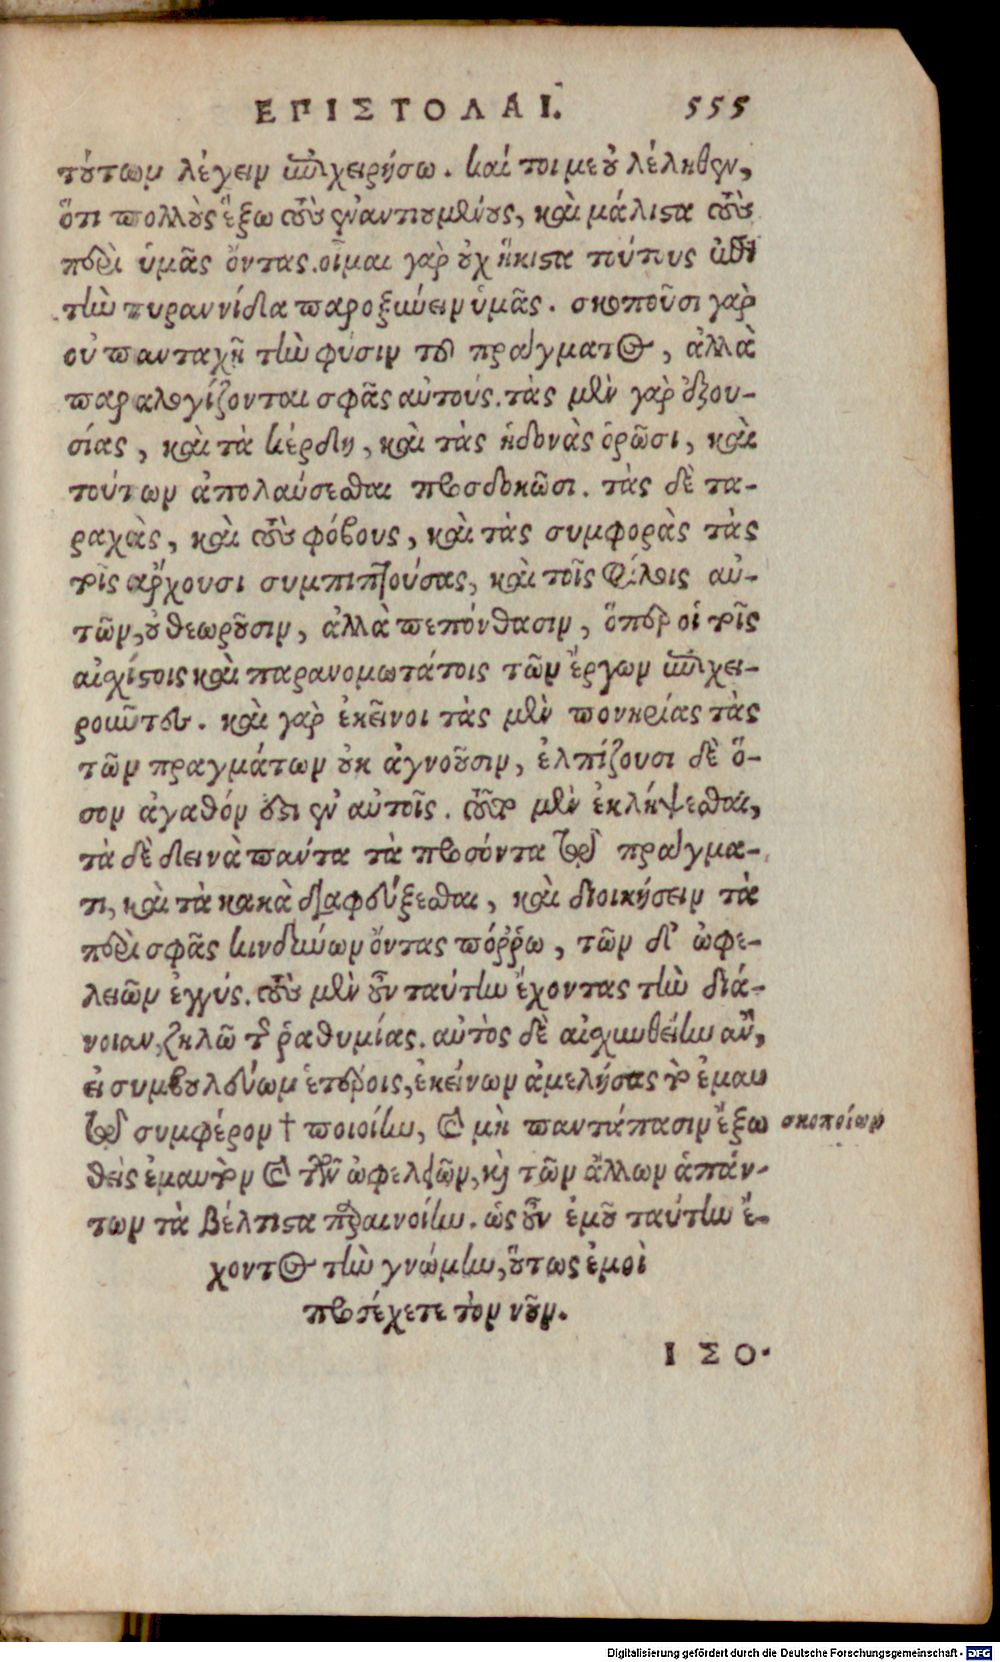 ΕΠΙΣΤΟΛΑΙ. 555
τούτων λέγειν ἐπιχειρήσω. καί τοι με οὐ λέληθεν,
ὅτι πολλοὺς ἕξω τοὺς ἐναντιουμένους, καὶ μάλιστα τοὺς
περὶ ὑμᾶς ὄντας. οἶμαι γὰρ οὐχ ἥκιστα τούτους ἐπὶ
τὴν τυραννίδα παροξύνειν ὑμᾶς. σκοποῦσι γὰρ
οὐ πανταχῆ τὴν φύσιν τοῦ πράγματος, ἀλλὰ
παραλογίζονται σφᾶς αὐτούς. τὰς μὲν γὰρ ἐξου-
σίας, καὶ τὰ κέρδη, καὶ τὰς ἡδονὰς ὁρῶσι, καὶ
τούτων ἀπολαύσεσθαι προσδοκῶσι. τὰς δὲ τα-
ραχὰς, καὶ τοὺς φόβους, καὶ τὰς συμφορὰς τὰς
τοῖς ἄρχουσι συμπιπτούσας, καὶ τοῖς φίλοις αὐ-
τῶν, οὐ θεωροῦσιν, ἀλλὰ πεπόνθασιν, ὅπερ οἱ τοῖς
αἰσχίστοις καὶ παρανομωτάτοις τῶν ἔργων ἐπιχει-
ροῦντες. καὶ γὰρ ἐκεῖνοι τὰς μὲν πονηρίας τὰς
τῶν πραγμάτων οὐκ ἀγνοοῦσιν, ἐλπίζουσι δὲ ὅ-
σον ἀγαθόν ἐστι ἐν αὐτοῖς. τοῦτο μὲν ἐκλήψεσθαι,
τὰ δὲ δεινὰ πάντα τὰ προσόντα τῷ πράγμα-
τι, καὶ τὰ κακὰ διαφεύξεσθαι, καὶ διοικήσειν τὰ
περὶ σφᾶς κινδύνων ὄντας πόῤῥω, τῶν δ' ὠφε-
λειῶν ἐγγύς. τοὺς μὲν οὖν ταύτην ἔχοντας τὴν διά-
νοιαν, ζηλῶ τῆς ῥαθυμίας. αὐτὸς δὲ αἰσχυνθείην ἂν,
εἰ συμβουλεύων ἑτέροις, ἐκείνων ἀμελήσας τὸ ἐμαυ
τῷ συμφέρον † ποιοίην, καὶ μὴ παντάπασιν ἔξω σκοποίων
θεὶς ἐμαυτὸν καὶ τῶν ὠφελειῶν, καὶ τῶν ἄλλων ἁπάν-
των τὰ βέλτιστα παραινοίην. ὡς οὖν ἐμοῦ ταύτην ἔ-
χοντος τὴν γνώμην, οὕτως ἐμοὶ
προσέχετε τὸν νοῦν.
ΙΣΟ·
Digitalisierung gefördert durch die Deutsche Forschungsgemeinschaft - DFG